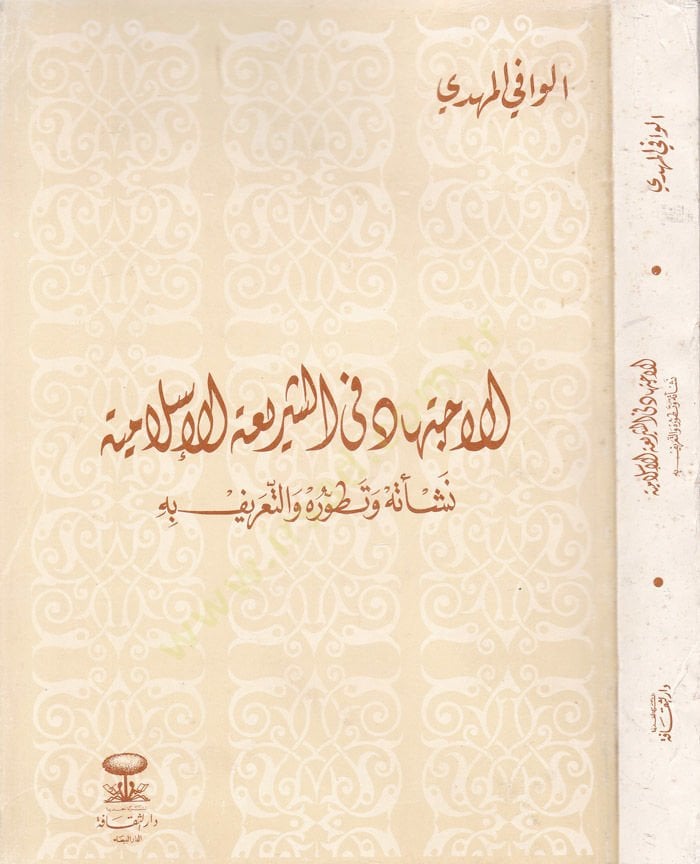 الوافي المهدي
الاجتهاد في الشريعة الإسلامية
نَشْأتهُ وَتَطوّره وَالتّعريف بِهِ
دار الثقافة
الدار البيضاء
الوافي المهدي
الاجتهاد في الشريعة الإسلامية
نشأته وتطوره والتعريف به
دار الثقافة